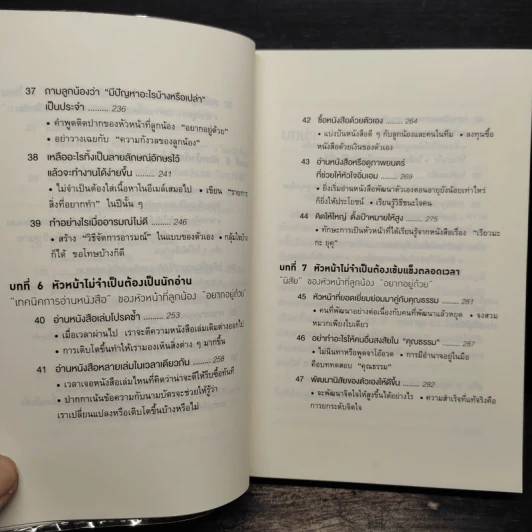 37 ถามลูกน้องว่า "มีปัญหาอะไรบ้างหรือเปล่า"
เป็นประจำ ......... 236
• คำพูดติดปากของหัวหน้าที่ลูกน้อง "อยากอยู่ด้วย"
• อย่าวางเฉยกับ "ความกังวลของลูกน้อง"
38 เหลืออะไรทิ้งเป็นลายลักษณ์อักษรไว้
แล้วจะทำงานได้ง่ายขึ้น ......... 241
• ไม่จำเป็นต้องใส่เนื้อหาในอีเมล์เสมอไป • เขียน "รายการ
สิ่งที่อยากทำ" ในปีนั้น ๆ
39 ทำอย่างไรเมื่ออารมณ์ไม่ดี ......... 246
• สร้าง "วิธีจัดการอารมณ์" ในแบบของตัวเอง • กลุ้มใจไป
ก็ได้ ขอโทษบ้างก็ดี
บทที่ 6 หัวหน้าไม่จำเป็นต้องเป็นนักอ่าน
"เทคนิคการอ่านหนังสือ" ของหัวหน้าที่ลูกน้อง "อยากอยู่ด้วย"
40 อ่านหนังสือเล่มโปรดซ้ำ ......... 253
• เมื่อเวลาผ่านไป เราจะตีความหนังสือเล่มเดิมต่างออกไป
• การเติบโตขึ้นทำให้เรามองเห็นสิ่งต่าง ๆ มากขึ้น
41 อ่านหนังสือหลายเล่มในเวลาเดียวกัน ......... 258
• เวลาเจอหนังสือเล่มไหนที่คิดว่าน่าจะดีให้รีบซื้อทันที
• ปากกาเน้นข้อความกับนามบัตรจะช่วยให้รู้ว่า
เราเปลี่ยนแปลงหรือเติบโตขึ้นบ้างหรือไม่
42 ซื้อหนังสือด้วยตัวเอง ......... 264
• แบ่งปันหนังสือดี ๆ กับลูกน้องและคนในทีม • ลงทุนซื้อ
หนังสือด้วยเงินของตัวเอง
43 อ่านหนังสือหรือดูภาพยนตร์
ที่ช่วยให้หัวใจอิ่มเอม ......... 269
• ยิ่งเริ่มอ่านหนังสือพัฒนาตัวเองตอนอายุยังน้อยเท่าไหร่
ก็ยิ่งได้ประโยชน์ • เรียนรู้วิธีชนะใจคน
44 คิดให้ใหญ่ ตั้งเป้าหมายให้สูง ......... 275
• ทักษะการเป็นหัวหน้าที่ได้เรียนรู้จากหนังสือเรื่อง "เรียวมะ
กะ ยุคุ"
บทที่ 7 หัวหน้าไม่จำเป็นต้องเข้มแข็งตลอดเวลา
"นิสัย" ของหัวหน้าที่ลูกน้อง "อยากอยู่ด้วย"
45 หัวหน้าที่ยอดเยี่ยมย่อมมาคู่กับคุณธรรม ......... 281
• คนที่พัฒนาอย่างต่อเนื่องกับคนที่พัฒนาแล้วหยุด • จงสวม
หมวกเพียงใบเดียว
46 อย่าทำอะไรให้คนอื่นสงสัยใน "คุณธรรม" ......... 287
• ไม่นินทาหรือพูดจาโอ้อวด • การมีอำนาจอยู่ในมือ
คือบททดสอบ "คุณธรรม"
47 พัฒนานิสัยของตัวเองให้ดีขึ้น ......... 292
• จะพัฒนาจิตใจให้สูงขึ้นได้อย่างไร • ความสำเร็จที่แท้จริงคือ
การยกระดับจิตใจ